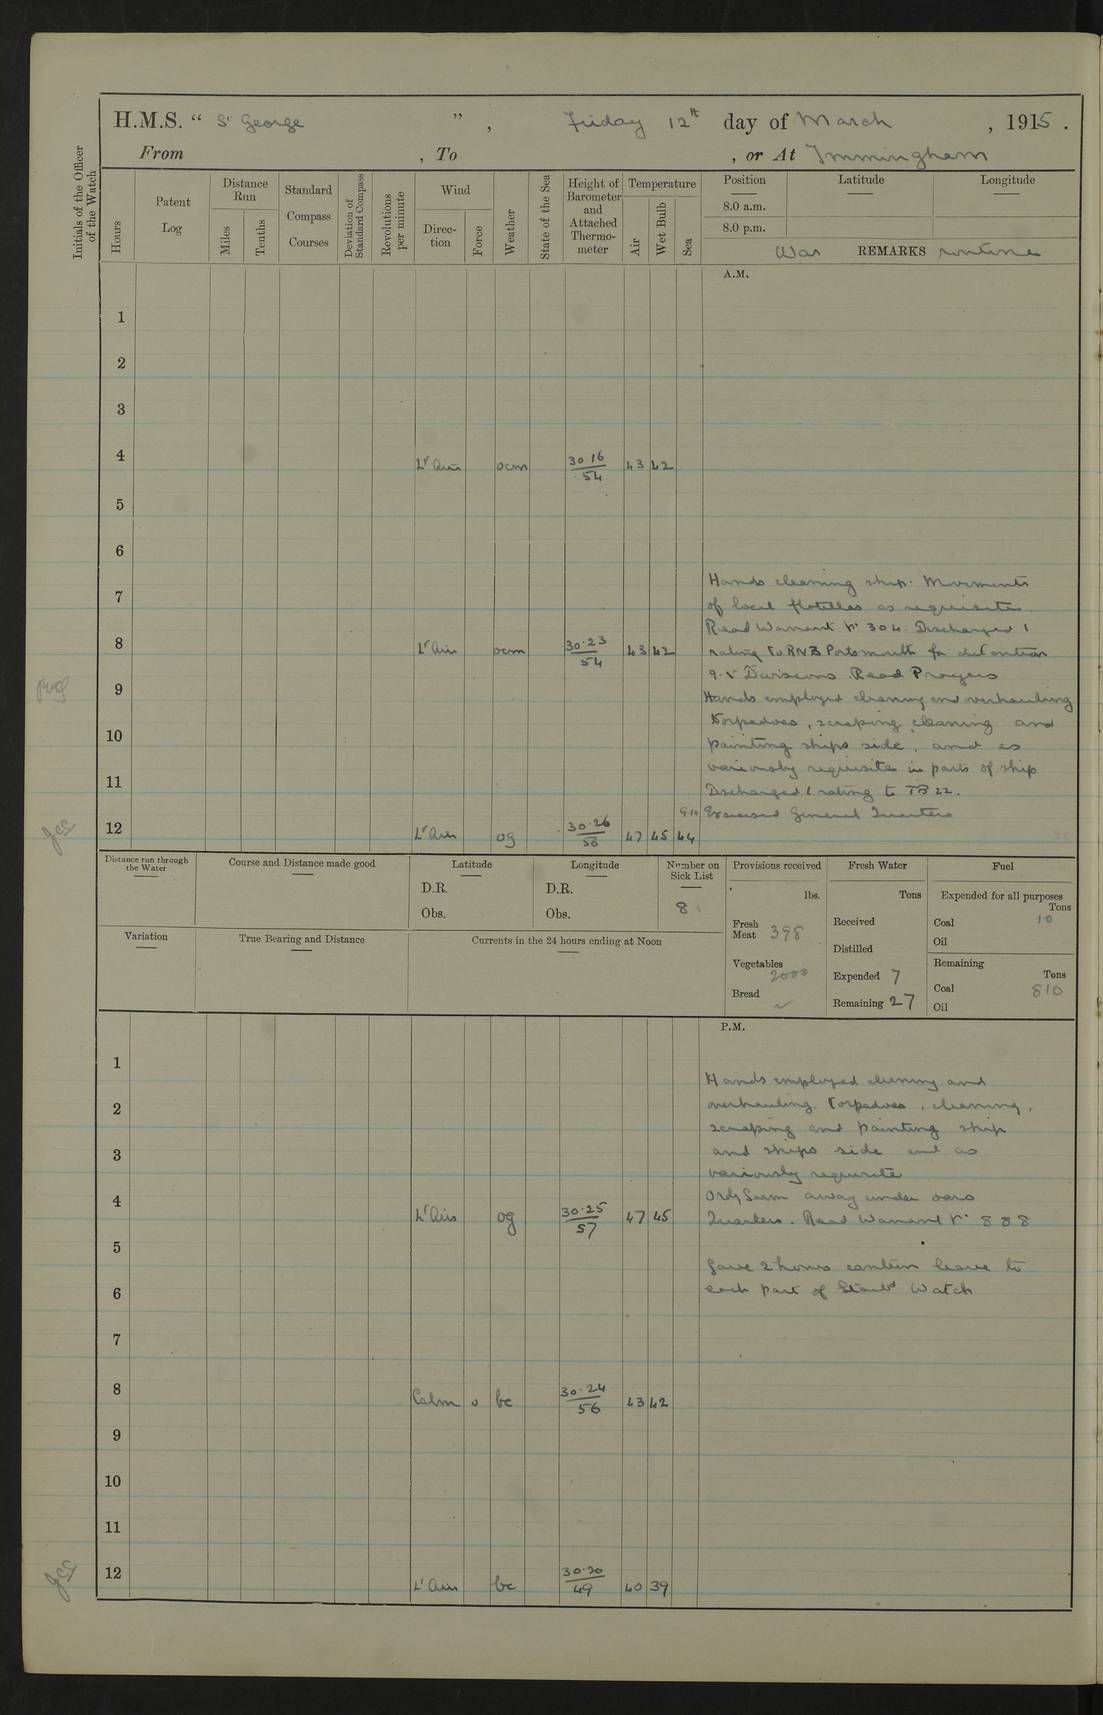 H.M.S. “ St George ” , Friday 12th day of March , 1915 .
From , To , or At Immingham
Initials of the Officer of the Watch
Hours
Patent Log
Distance Run
Miles
Tenths
Standard Compass Courses
Deviation of Standard Compass
Revolutions per minute
Wind
Direction
Force
Weather
State of the Sea
Height of Barometer and Attached Thermometer
Temperature
Air
Wet Bulb
Sea
Position Latitude Longitude
8.0 a.m.
8.0 p.m.
War REMARKS routine
A.M.
1
2
3
4 Lt Airs ocm 30.16/54 43 42
5
6
Hands cleaning ship. Movements
7
of local flotillas as requisite.
Read Warrant No 304. Discharged 1
8 Lt Airs ocm 30.23/54 43 42 rating to RNB Portsmouth for detention
9.5 Divisions. Read Prayers
9
Hands employed cleaning and overhauling
Torpedoes, scraping, cleaning and
10 painting ships side, and as
variously requisite in parts of ship
11 Discharged 1 rating to TB 22.
9.10 Exercised General Quarters
12 Lt Airs og 30.26/56 47 45 44
Jcc
Distance run through the Water
Course and Distance made good
Latitude
D.R.
Obs.
Longitude
D.R.
Obs.
Number on Sick List
8
Provisions received
lbs.
Fresh Meat 398
Vegetables 2000
Bread
Fresh Water
Tons
Received
Distilled
Expended 7
Remaining 27
Fuel
Expended for all purposes
Tons
Coal 10
Oil
Remaining
Tons
Coal 810
Oil
Variation
True Bearing and Distance
Currents in the 24 hours ending at Noon
P.M.
1
Hands employed cleaning and
2 overhauling Torpedoes, cleaning,
scraping and painting ship
3 and ships side and as
variously requisite
4 Ordy Seam away under oars
Lt Airs og 30.25/57 47 45 Quarters. Read Warrant No 888
5
Gave 2 hours canteen leave to
6 each part of Starbd Watch
7
8 Calm 0 bc 30.24/56 43 42
9
10
11
12 Lt Airs bc 30.20/49 40 39
Jcc